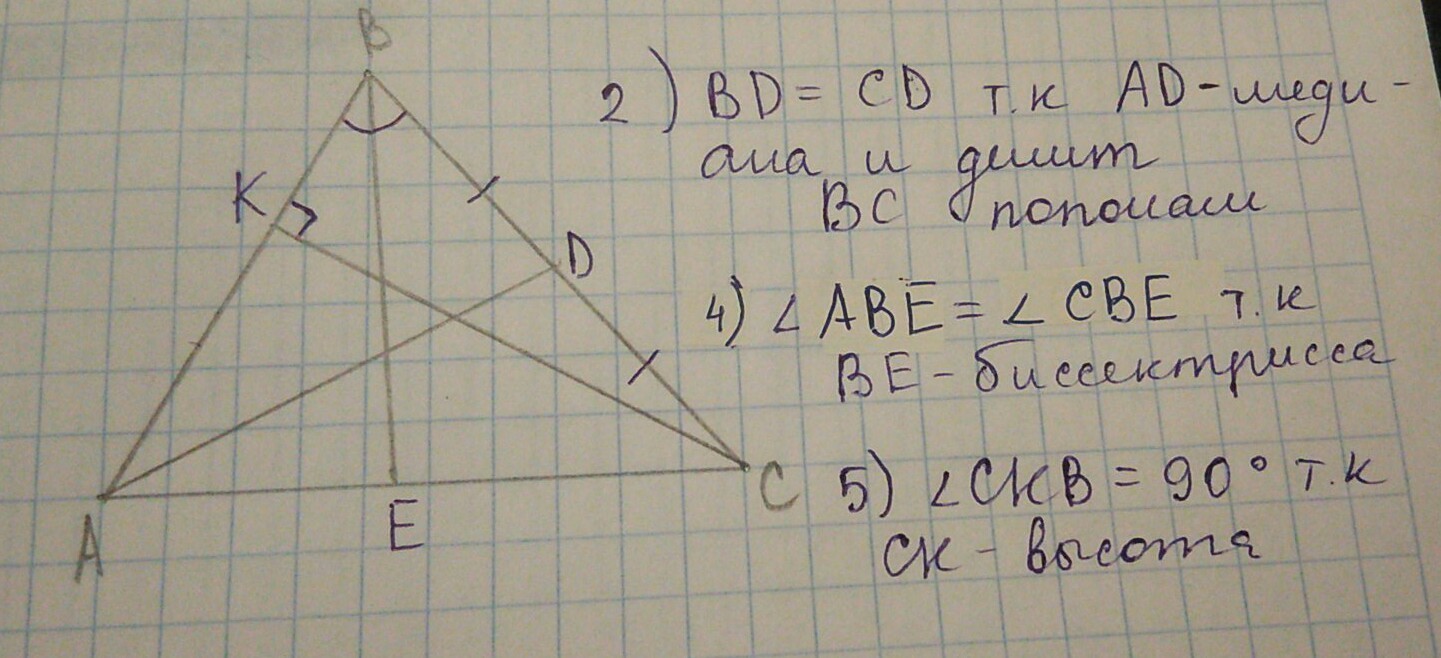 B
2) BD = CD т.к AD-меди-
ана и делит
BC пополам
K
D
4) ∠ABE = ∠CBE т.к
BE-биссектрисса
C
5) ∠CKB = 90° т.к
CK - высота
A
E